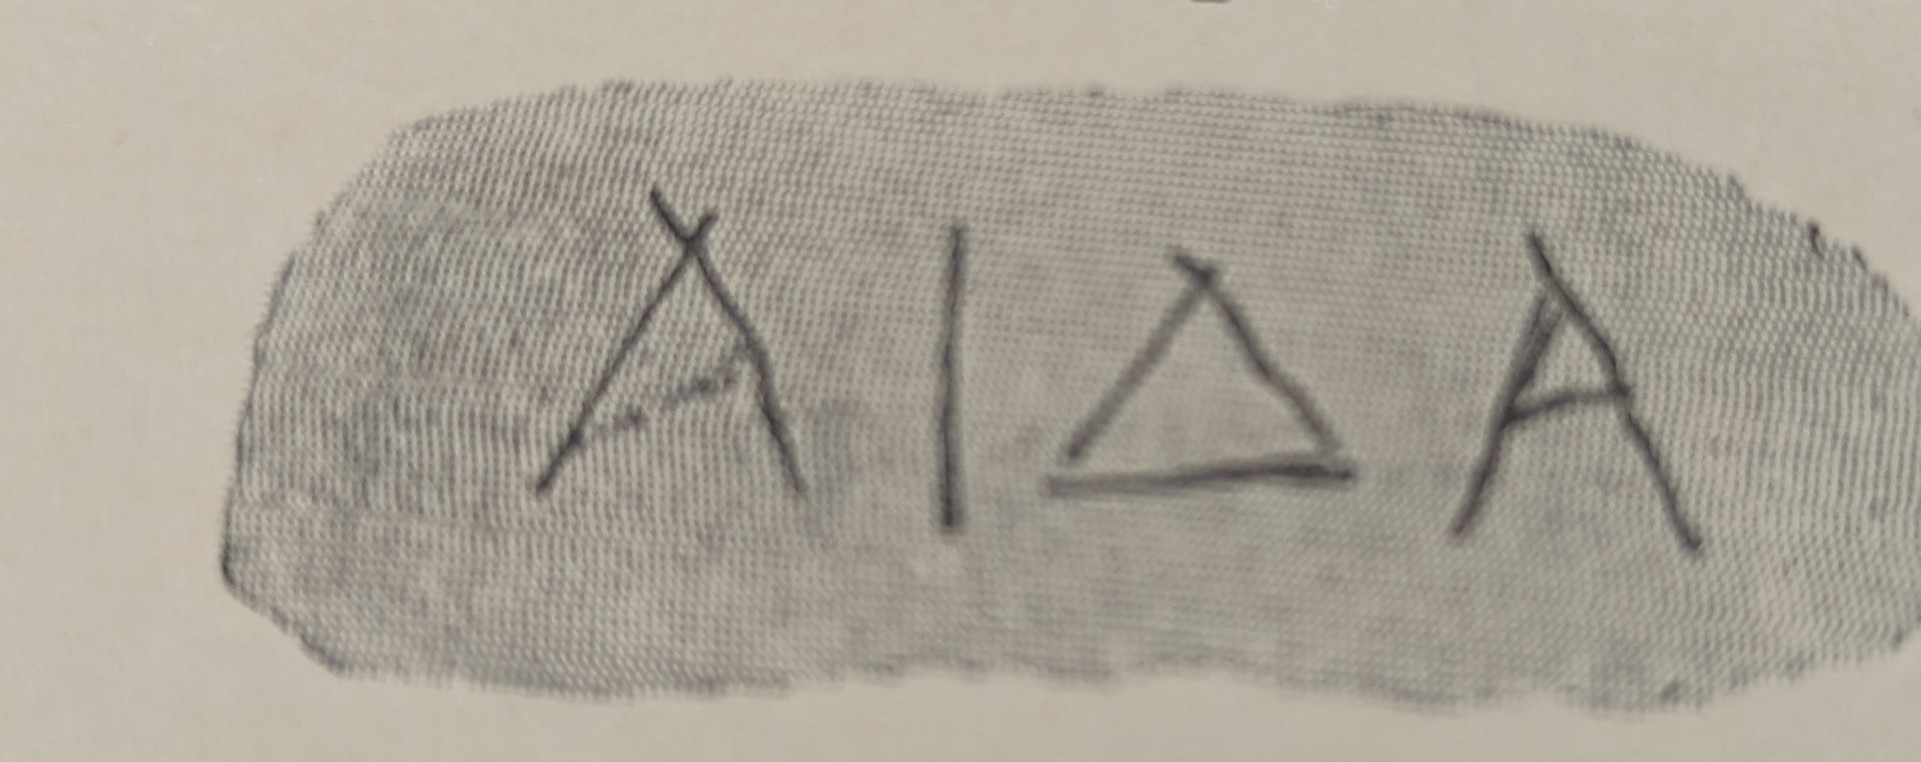 ΑΙΔΑ